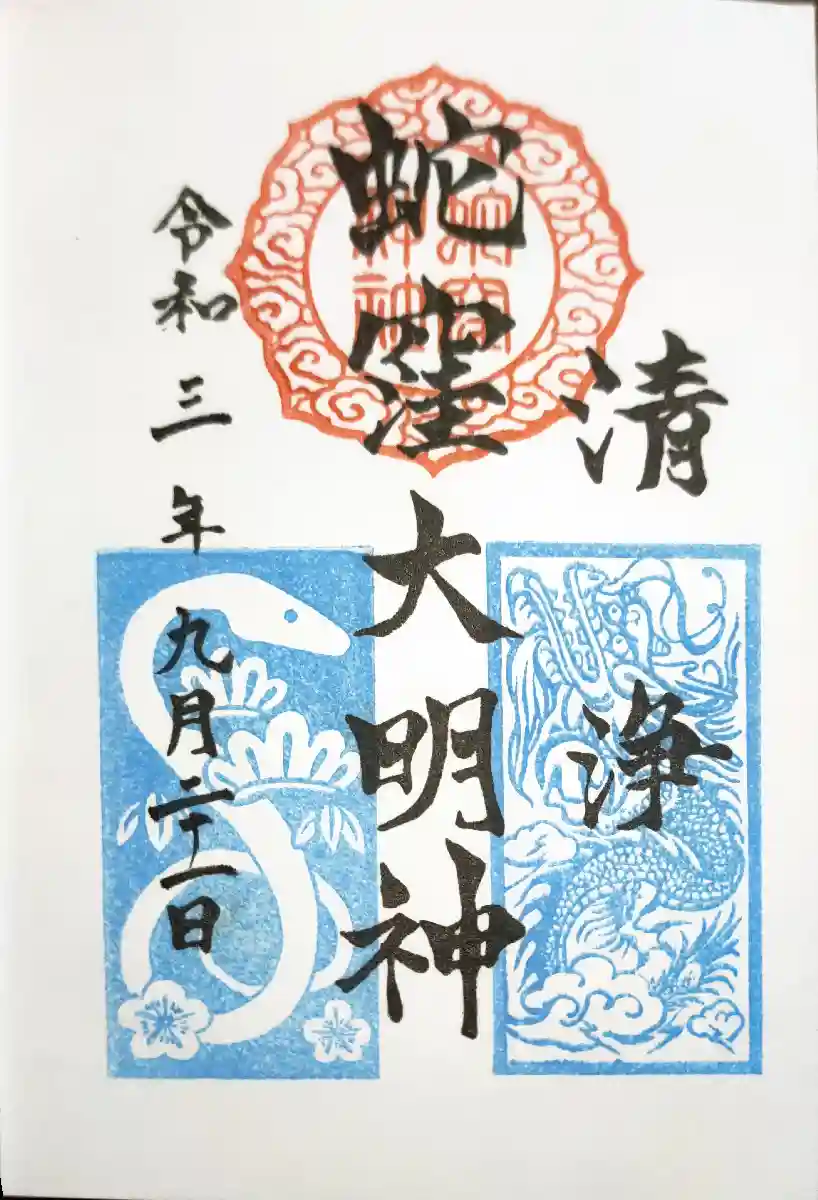 清浄
蛇窪大明神
令和三年九月二十一日